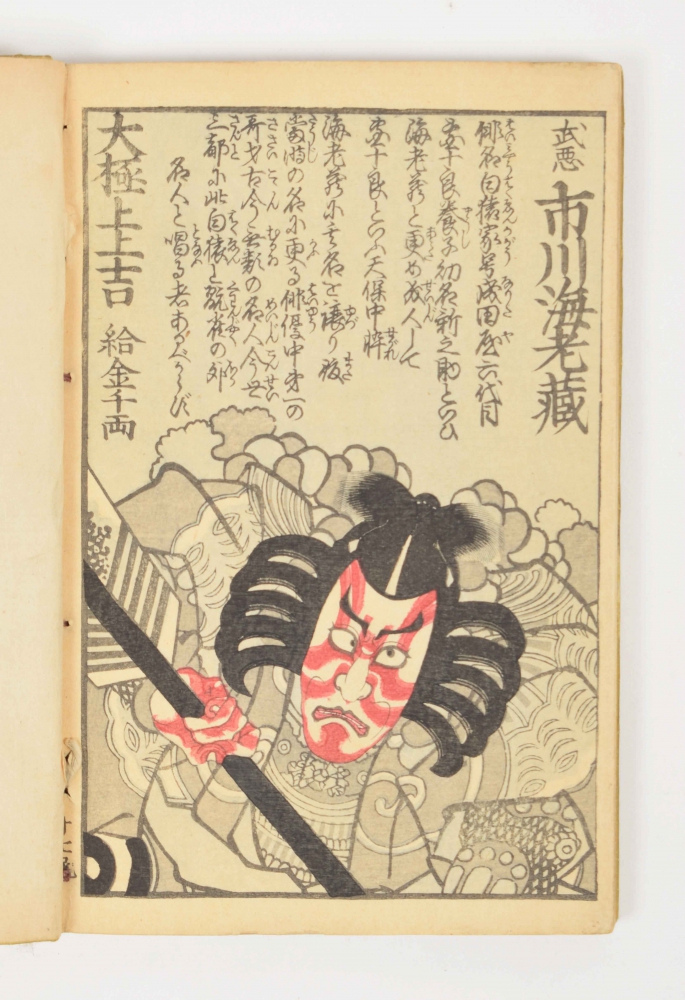 武悪 市川海老藏
俳名白猿家号成田屋六代目
團十良養子初名新之助といひ
海老蔵と更め成人して
團十良といふ天保中悴
海老蔵に其名を譲り後
當時の名に更る俳優中第一の
古今無類の名人今世
三都に此白猿と翫雀の外
名人と唱る者あるべからず
大極上上吉 給金千両